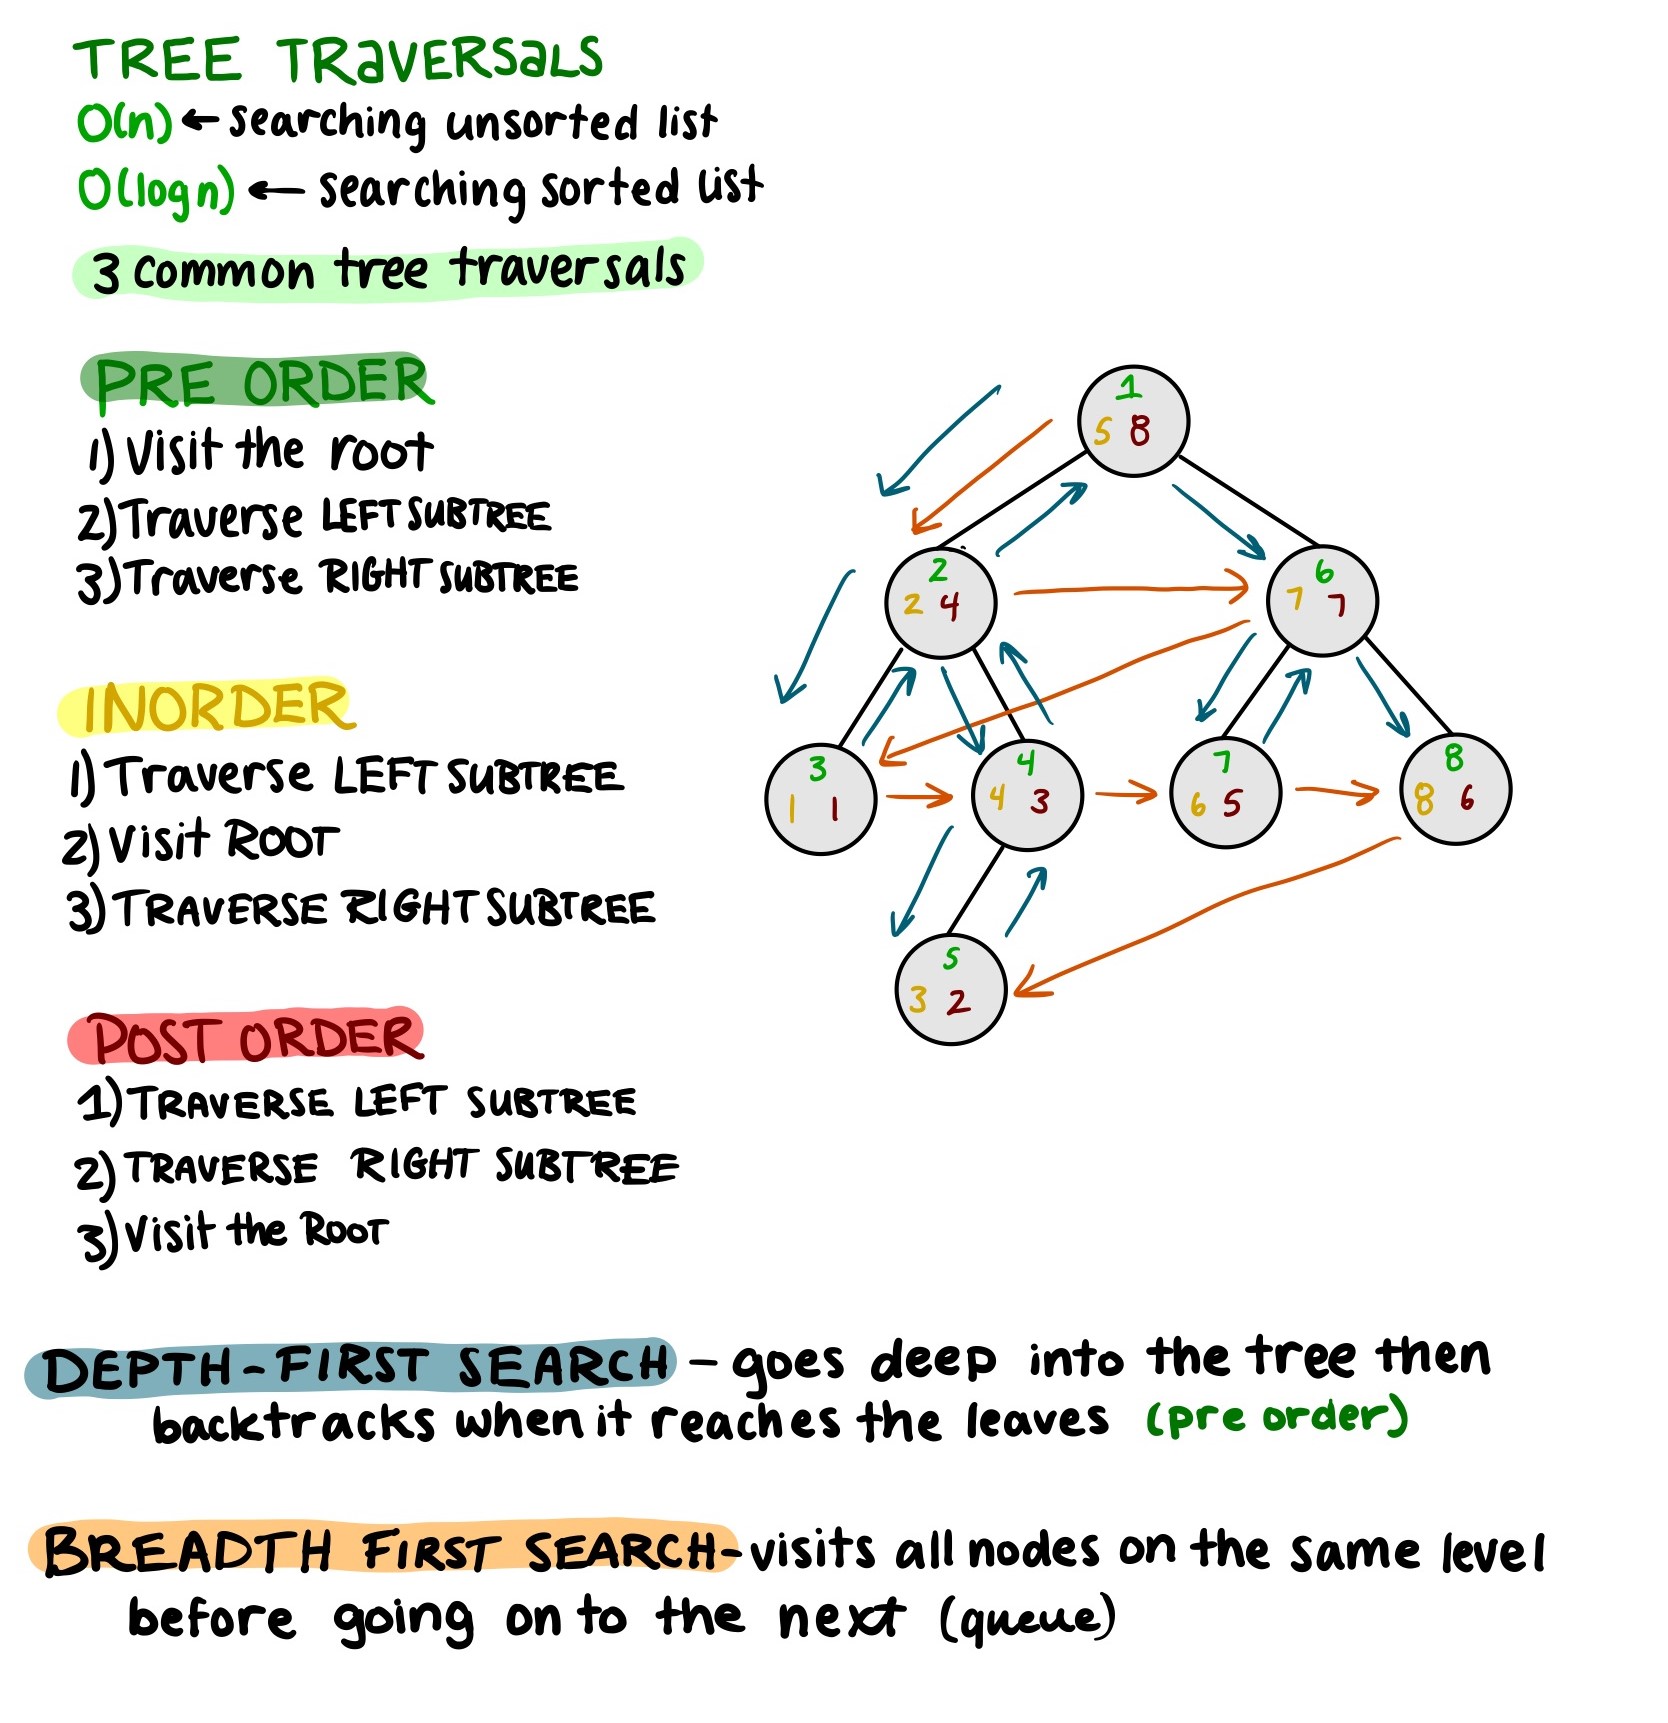 TREE TRaVERSaLS
O(n) ← searching unsorted list
O(log n) ← searching sorted list
3 common tree traversals
PRE ORDER
1) Visit the root
2) Traverse LEFT SUBTREE
3) Traverse RIGHT SUBTREE
INORDER
1) Traverse LEFT SUBTREE
2) Visit ROOT
3) TRAVERSE RIGHT SUBTREE
POST ORDER
1) TRAVERSE LEFT SUBTREE
2) TRAVERSE RIGHT SUBTREE
3) Visit the ROOT
1
5 8
2
2 4
6
7 7
3
1 1
4
4 3
7
6 5
8
8 6
5
3 2
DEPTH-FIRST SEARCH - goes deep into the tree then
backtracks when it reaches the leaves (pre order)
BREADTH FIRST SEARCH - visits all nodes on the same level
before going on to the next (queue)